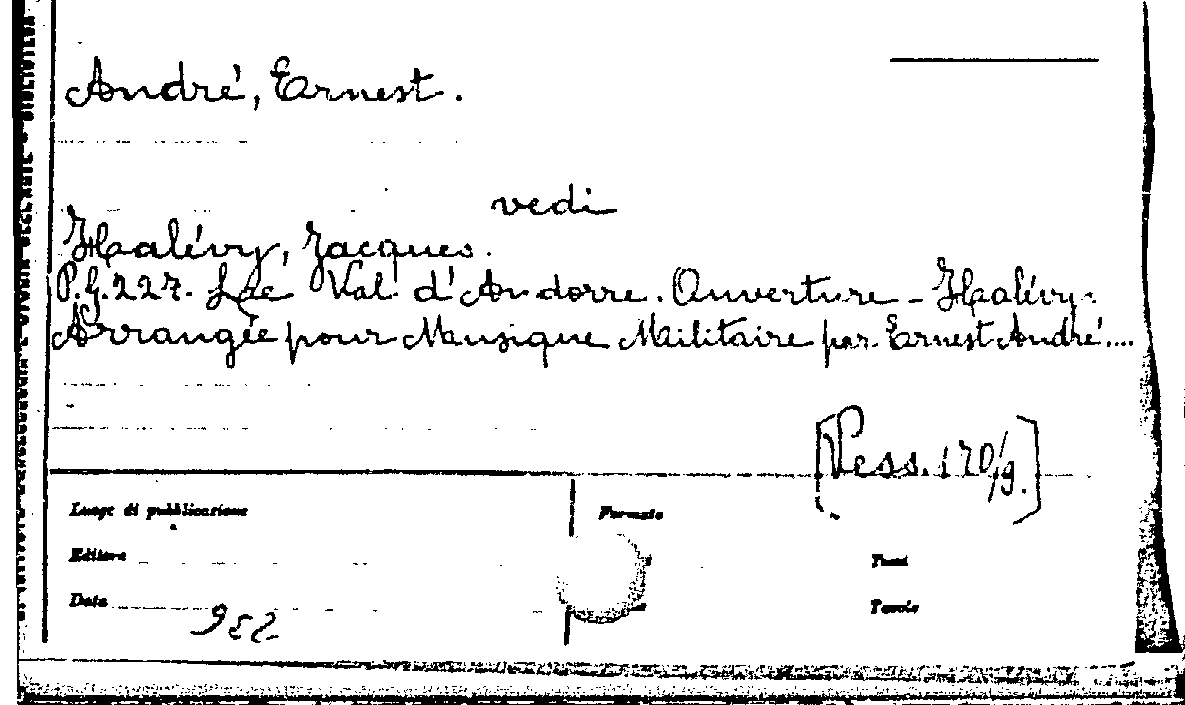 André, Ernest.
vedi
Halévy, Jacques.
P.G.227. Le Val d'Andorre. Ouverture - Halévy.
Arrangée pour Musique Militaire par Ernest André....
[Pess. 170/9.]
Luogo di pubblicazione
Formato
Editore
Tomi
Data
Tavole